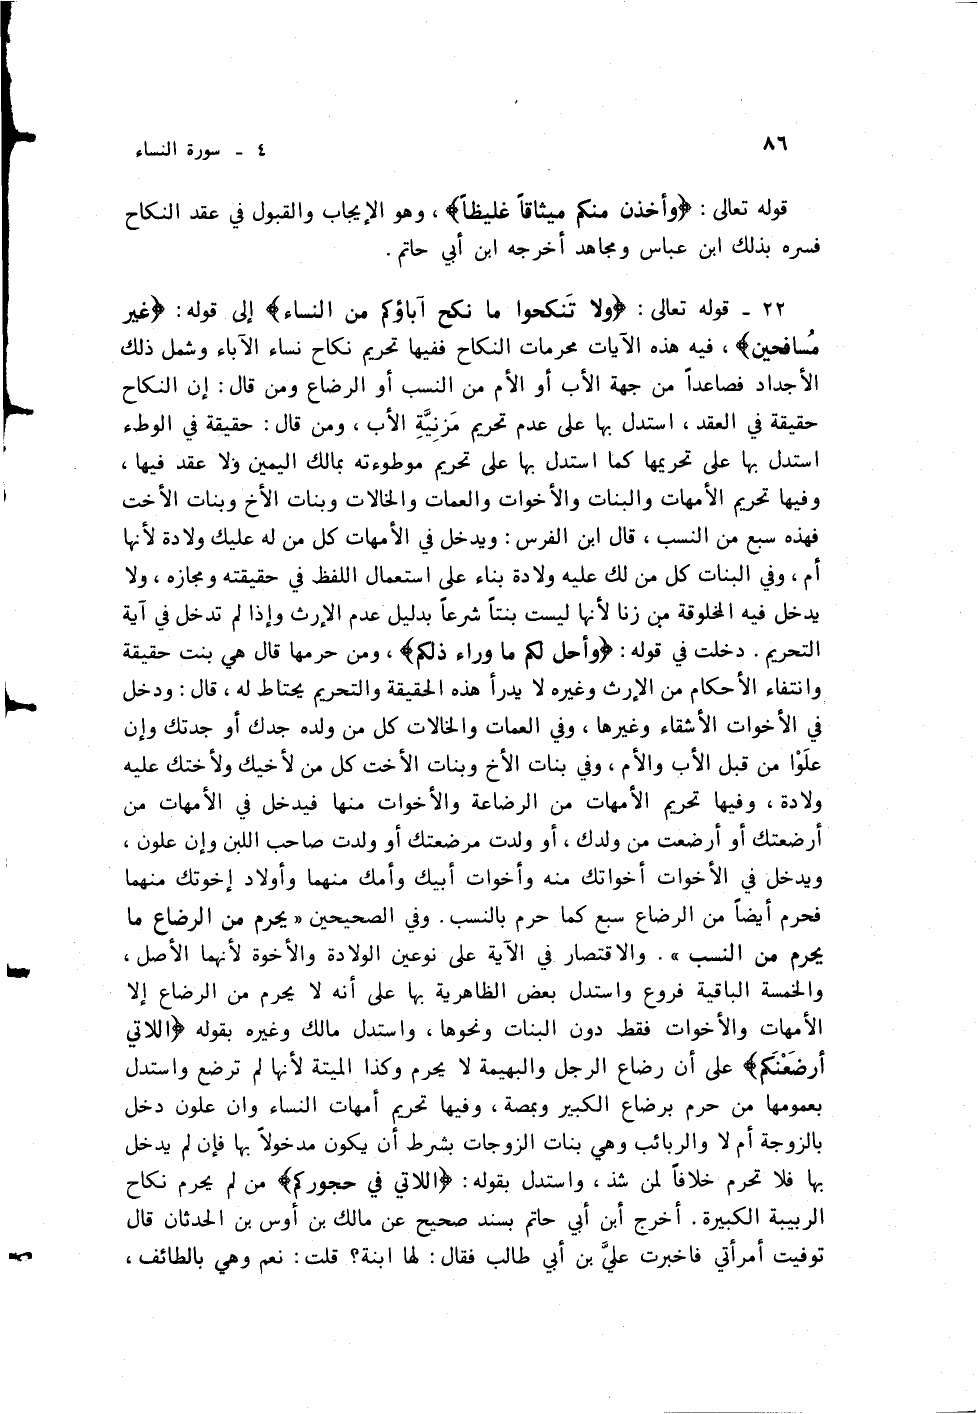 ٨٦
٤ - سورة النساء
قوله تعالى : ﴿وأخذن منكم ميثاقاً غليظاً﴾ ، وهو الإيجاب والقبول في عقد النكاح
فسره بذلك ابن عباس ومجاهد أخرجه ابن أبي حاتم .
٢٢ - قوله تعالى : ﴿ولا تَنكحوا ما نكح آباؤكم من النساء﴾ إلى قوله : ﴿غير
مُسافحين﴾ ، فيه هذه الآيات محرمات النكاح ففيها تحريم نكاح نساء الآباء وشمل ذلك
الأجداد فصاعداً من جهة الأب أو الأم من النسب أو الرضاع ومن قال : إن النكاح
حقيقة في العقد ، استدل بها على عدم تحريم مَزنِيَّةِ الأب ، ومن قال : حقيقة في الوطء
استدل بها على تحريمها كما استدل بها على تحريم موطوءته بمالك اليمين ولا عقد فيها ،
وفيها تحريم الأمهات والبنات والأخوات والعمات والخالات وبنات الأخ وبنات الأخت
فهذه سبع من النسب ، قال ابن الفرس : ويدخل في الأمهات كل من له عليك ولادة لأنها
أم ، وفي البنات كل من لك عليه ولادة بناء على استعمال اللفظ في حقيقته ومجازه ، ولا
يدخل فيه المخلوقة من زنا لأنها ليست بنتاً شرعاً بدليل عدم الإرث وإذا لم تدخل في آية
التحريم . دخلت في قوله : ﴿وأحل لكم ما وراء ذلكم﴾ ، ومن حرمها قال هي بنت حقيقة
وانتفاء الأحكام من الإرث وغيره لا يدرأ هذه الحقيقة والتحريم يحتاط له ، قال : ودخل
في الأخوات الأشقاء وغيرها ، وفي العمات والخالات كل من ولده جدك أو جدتك وإن
علَوْا من قبل الأب والأم ، وفي بنات الأخ وبنات الأخت كل من لأخيك ولأختك عليه
ولادة ، وفيها تحريم الأمهات من الرضاعة والأخوات منها فيدخل في الأمهات من
أرضعتك أو أرضعت من ولدك ، أو ولدت مرضعتك أو ولدت صاحب اللبن وإن علون ،
ويدخل في الأخوات أخواتك منه وأخوات أبيك وأمك منهما وأولاد إخوتك منهما
فحرم أيضاً من الرضاع سبع كما حرم بالنسب . وفي الصحيحين « يحرم من الرضاع ما
يحرم من النسب » . والاقتصار في الآية على نوعين الولادة والأخوة لأنهما الأصل ،
والخمسة الباقية فروع واستدل بعض الظاهرية بها على أنه لا يحرم من الرضاع إلا
الأمهات والأخوات فقط دون البنات ونحوها ، واستدل مالك وغيره بقوله ﴿اللاتي
أرضَعْنَكم﴾ على أن رضاع الرجل والبهيمة لا يحرم وكذا الميتة لأنها لم ترضع واستدل
بعمومها من حرم برضاع الكبير وبمصة ، وفيها تحريم أمهات النساء وان علون دخل
بالزوجة أم لا والربائب وهي بنات الزوجات بشرط أن يكون مدخولاً بها فإن لم يدخل
بها فلا تحرم خلافاً لمن شذ ، واستدل بقوله : ﴿اللاتي في حجوركم﴾ من لم يحرم نكاح
الربيبة الكبيرة . أخرج أبن أبي حاتم بسند صحيح عن مالك بن أوس بن الحدثان قال
توفيت أمرأتي فاخبرت عليَّ بن أبي طالب فقال : لها ابنة؟ قلت : نعم وهي بالطائف ،